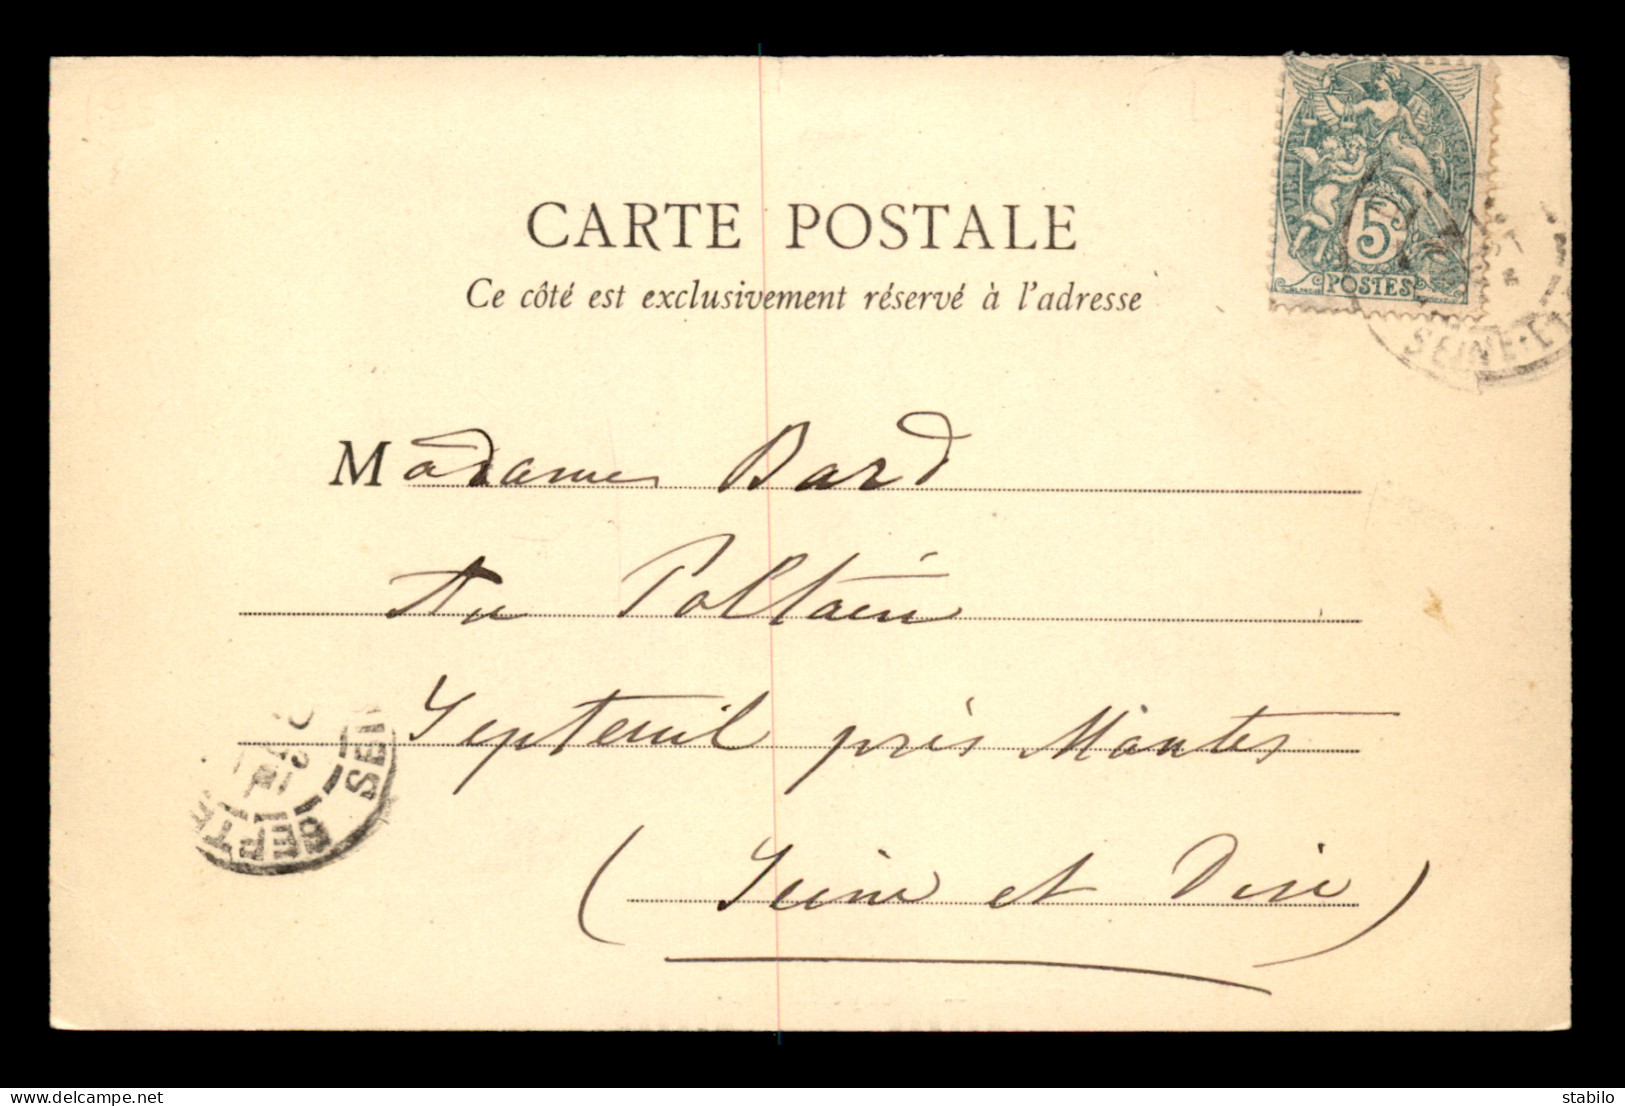 CARTE POSTALE
Ce côté est exclusivement réservé à l'adresse
5
POSTES
SEINE-ET
Madame Bard
Au
Septeuil près Mantes
SEPT
SEI
(Seine et Oise)
www.delcampe.net
stabilo